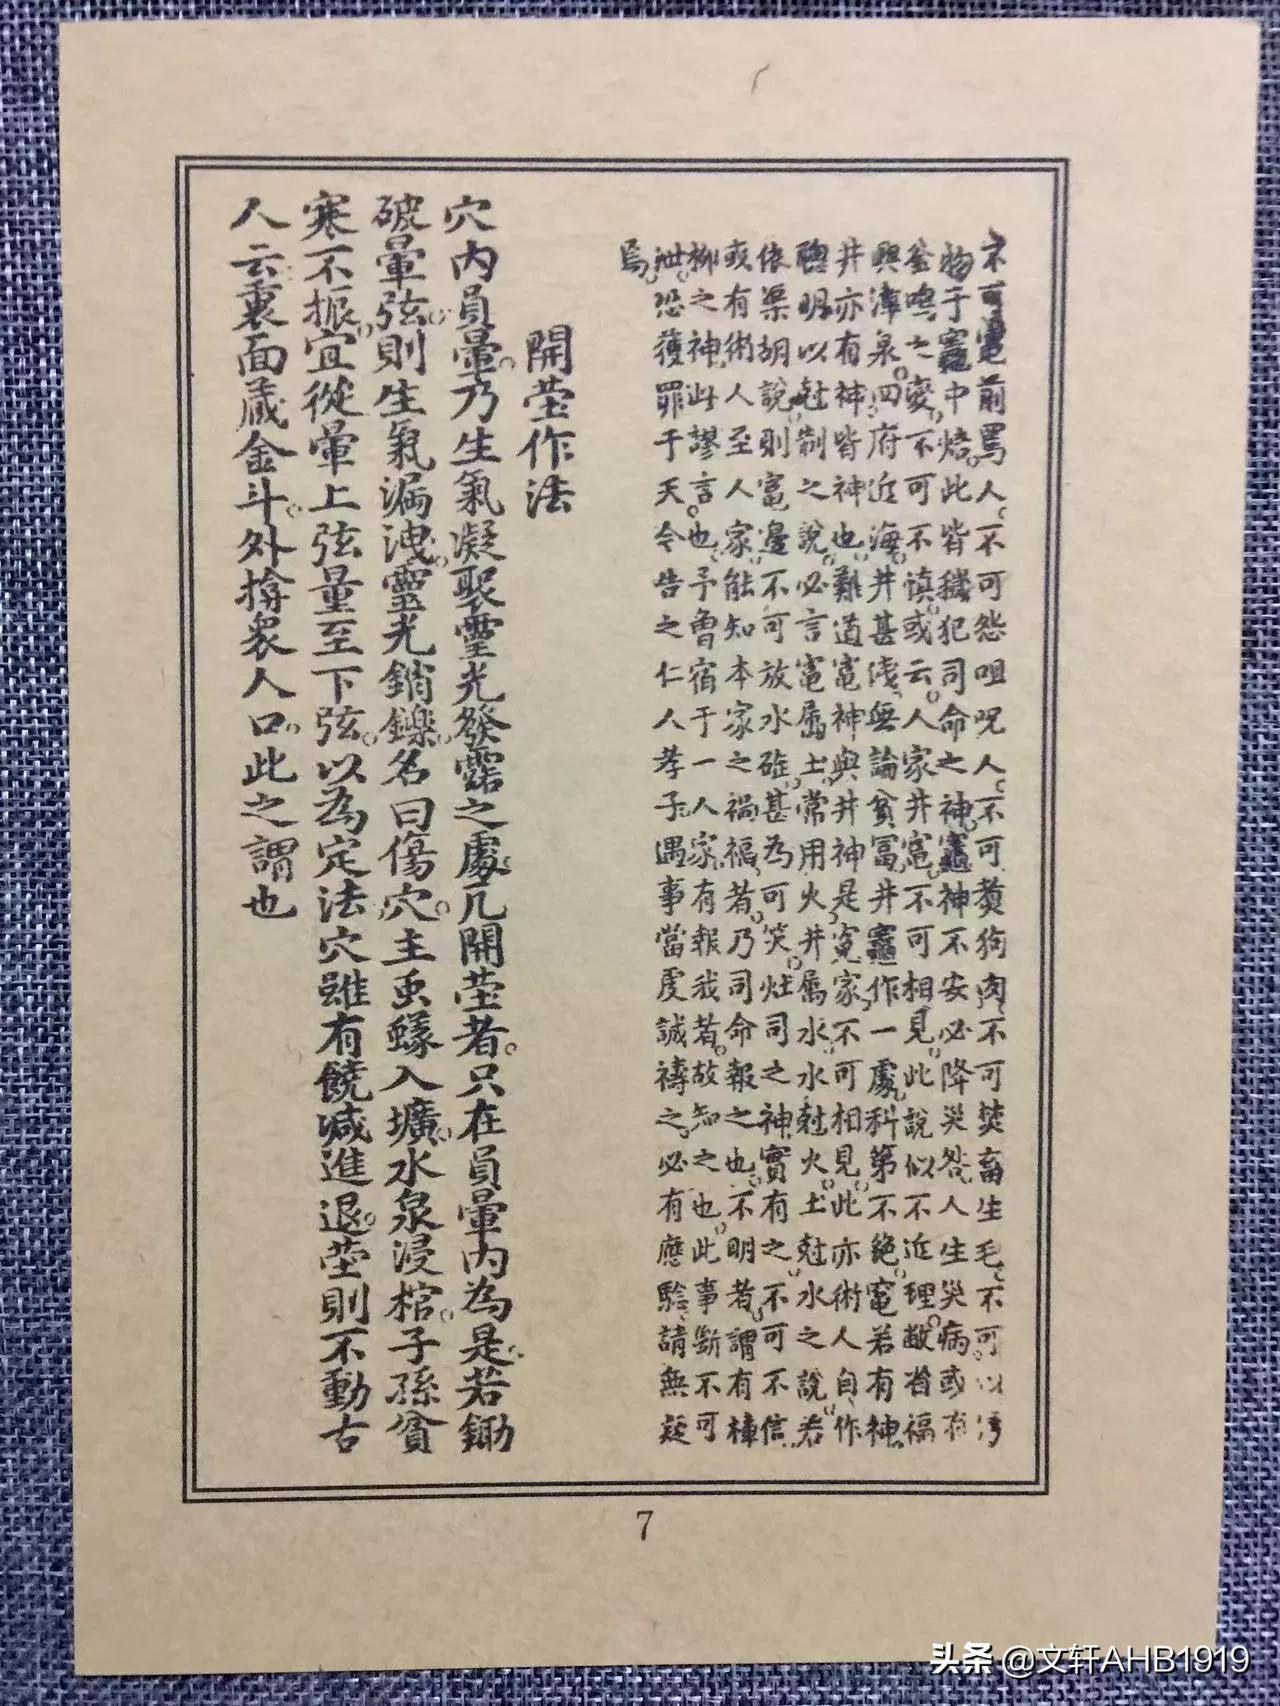 不可竃前罵人。不可怨咀呪人。不可煑狗肉。不可焚畜生毛。不可以污
物于竈中焙。此皆穢犯司命之神。竈神不安必降災咎。人生災病或有
釜鳴之変。不可不慎。或云。人家井竃。不可相見。此說似不近理。敝省福
興漳泉。四府近海。井甚浅。無論貧冨。井竈作一處。科第不絶。竃若有神。
井亦有神。皆神也。難道竃神與井神是寃家。不可相見。此亦術人自作
聰明。以尅制之說。必言竃屬土。常用火。井屬水。水尅火。土尅水之說。若
依渠胡說。則竃邊不可放水硴。甚為可笑。灶司之神。實有之。不可不信。
或有術人至人家。能知本家之禍福者。乃司命報之也。不明者。謂有樟
柳之神。此謬言也。予魯宿于一人家。有報我者。故知之也。此事斷不可
泄。恐獲罪于天。今告之仁人孝子。遇事當虔誠禱之。必有應驗。請無疑
焉。
開塋作法
穴內員暈。乃生氣凝聚靈光發露之處。凡開塋者。只在員暈內為是。若鋤
破暈弦。則生氣漏洩。靈光銷鑠。名曰傷穴。主虫蟻入壙。水泉浸棺。子孫貧
寒不振。宜從暈上弦量至下弦。以為定法。穴雖有饒減進退。塋則不動古
人云。裏面藏金斗。外揜衆人口。此之謂也
7
头条 @文轩AHB1919